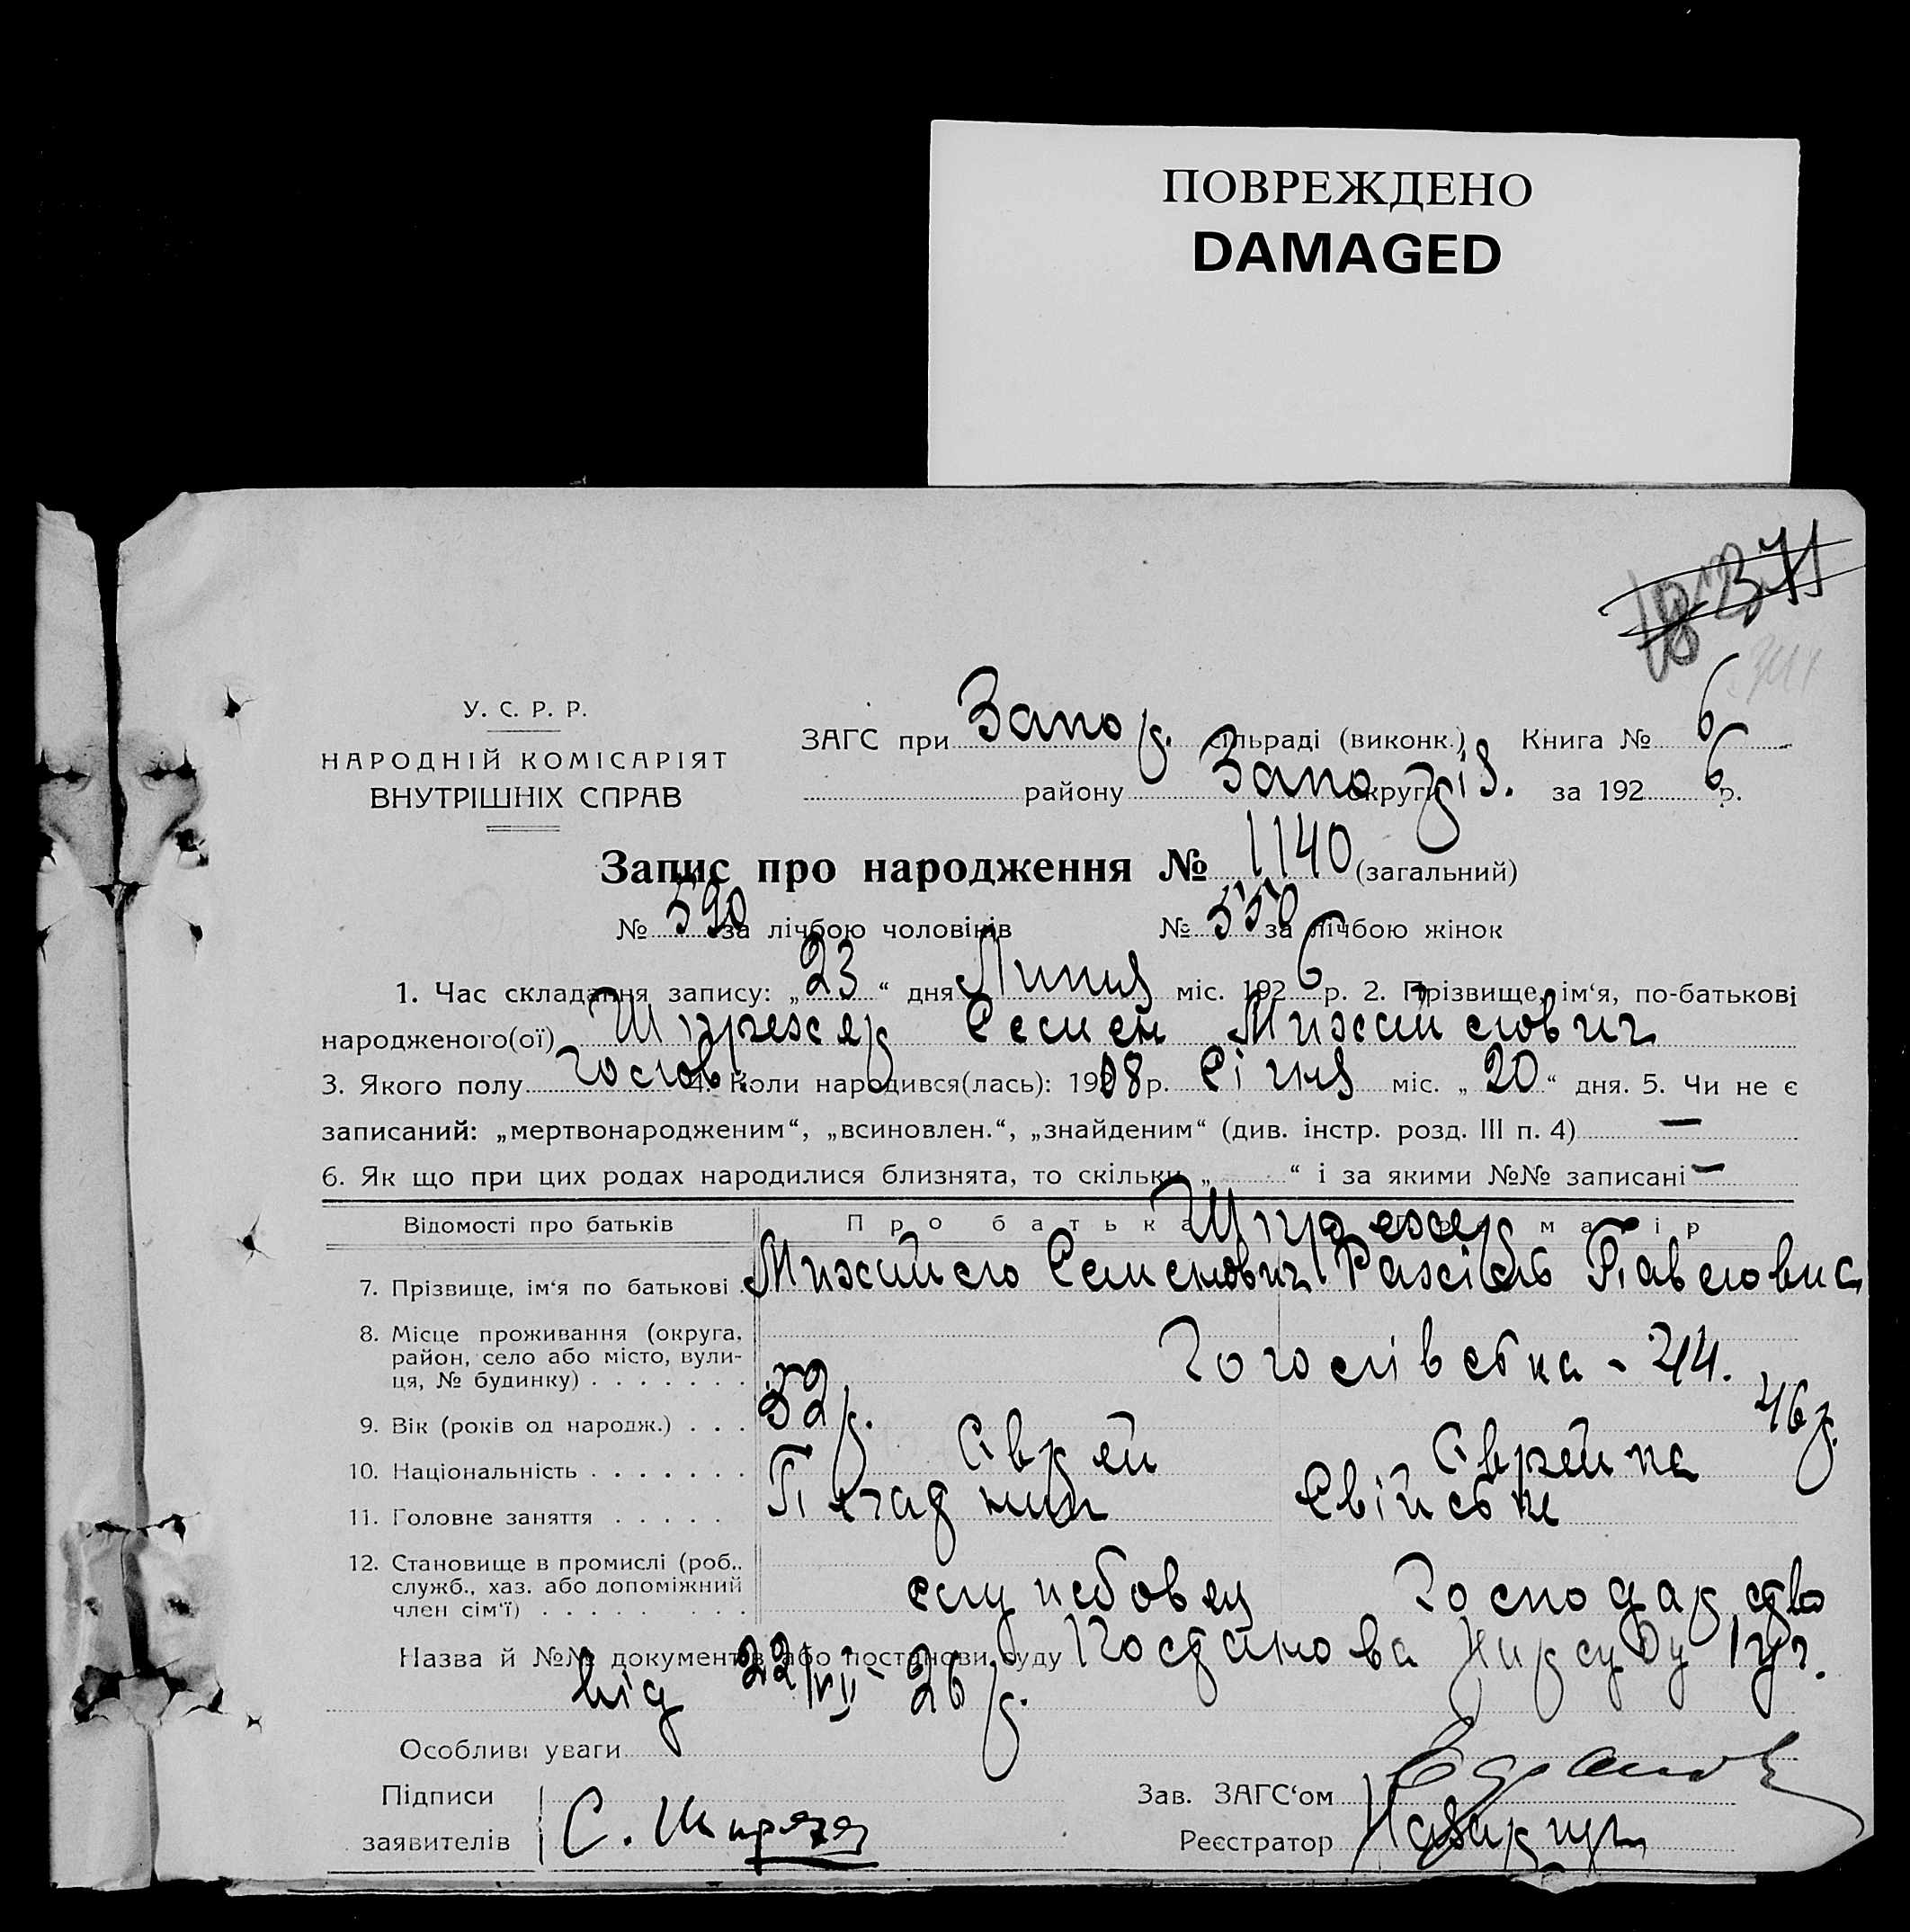 ПОВРЕЖДЕНО
DAMAGED
У. С. Р. Р.
НАРОДНІЙ КОМІСАРІЯТ
ВНУТРІШНІХ СПРАВ
ЗАГС при Запор. сільраді (виконк.) Книга № 6
району Запоріз. округи за 1926 р.
Запис про народження № 1140 (загальний)
№ 590 за лічбою чоловіків № 550 за лічбою жінок
1. Час складання запису: „23“ дня Липня міс. 1926 р. 2. Прізвище, ім‘я, по-батькові
народженого(ої) Семен Михайлович
3. Якого полу чолов. 4. Коли народився(лась): 1908 р. Січня міс. „20“ дня. 5. Чи не є
записаний: „мертвонародженим“, „всиновлен.“, „знайденим“ (див. інстр. розд. III п. 4) —
6. Як що при цих родах народилися близнята, то скільки „ “ і за якими №№ записані —
Відомості про батьків Про батька матір
7. Прізвище, ім‘я по батькові Михайло Семенович Рахіль Павловна
8. Місце проживання (округа,
район, село або місто, вули-
ця, № будинку) Гоголівська - 44.
9. Вік (років од народж.) 52 р. 46 р.
10. Національність Єврей Єврейка
11. Головне заняття Свійське
12. Становище в промислі (роб.,
служб., хаз. або допоміжний
член сім‘ї) службовец Господарство
Назва й №№ документів або постанови суду Постанова Нарсуду 1 уч.
від 22/VII - 26 р.
Особливі уваги
Підписи
заявителів С.
Зав. ЗАГС‘ом
Реєстратор